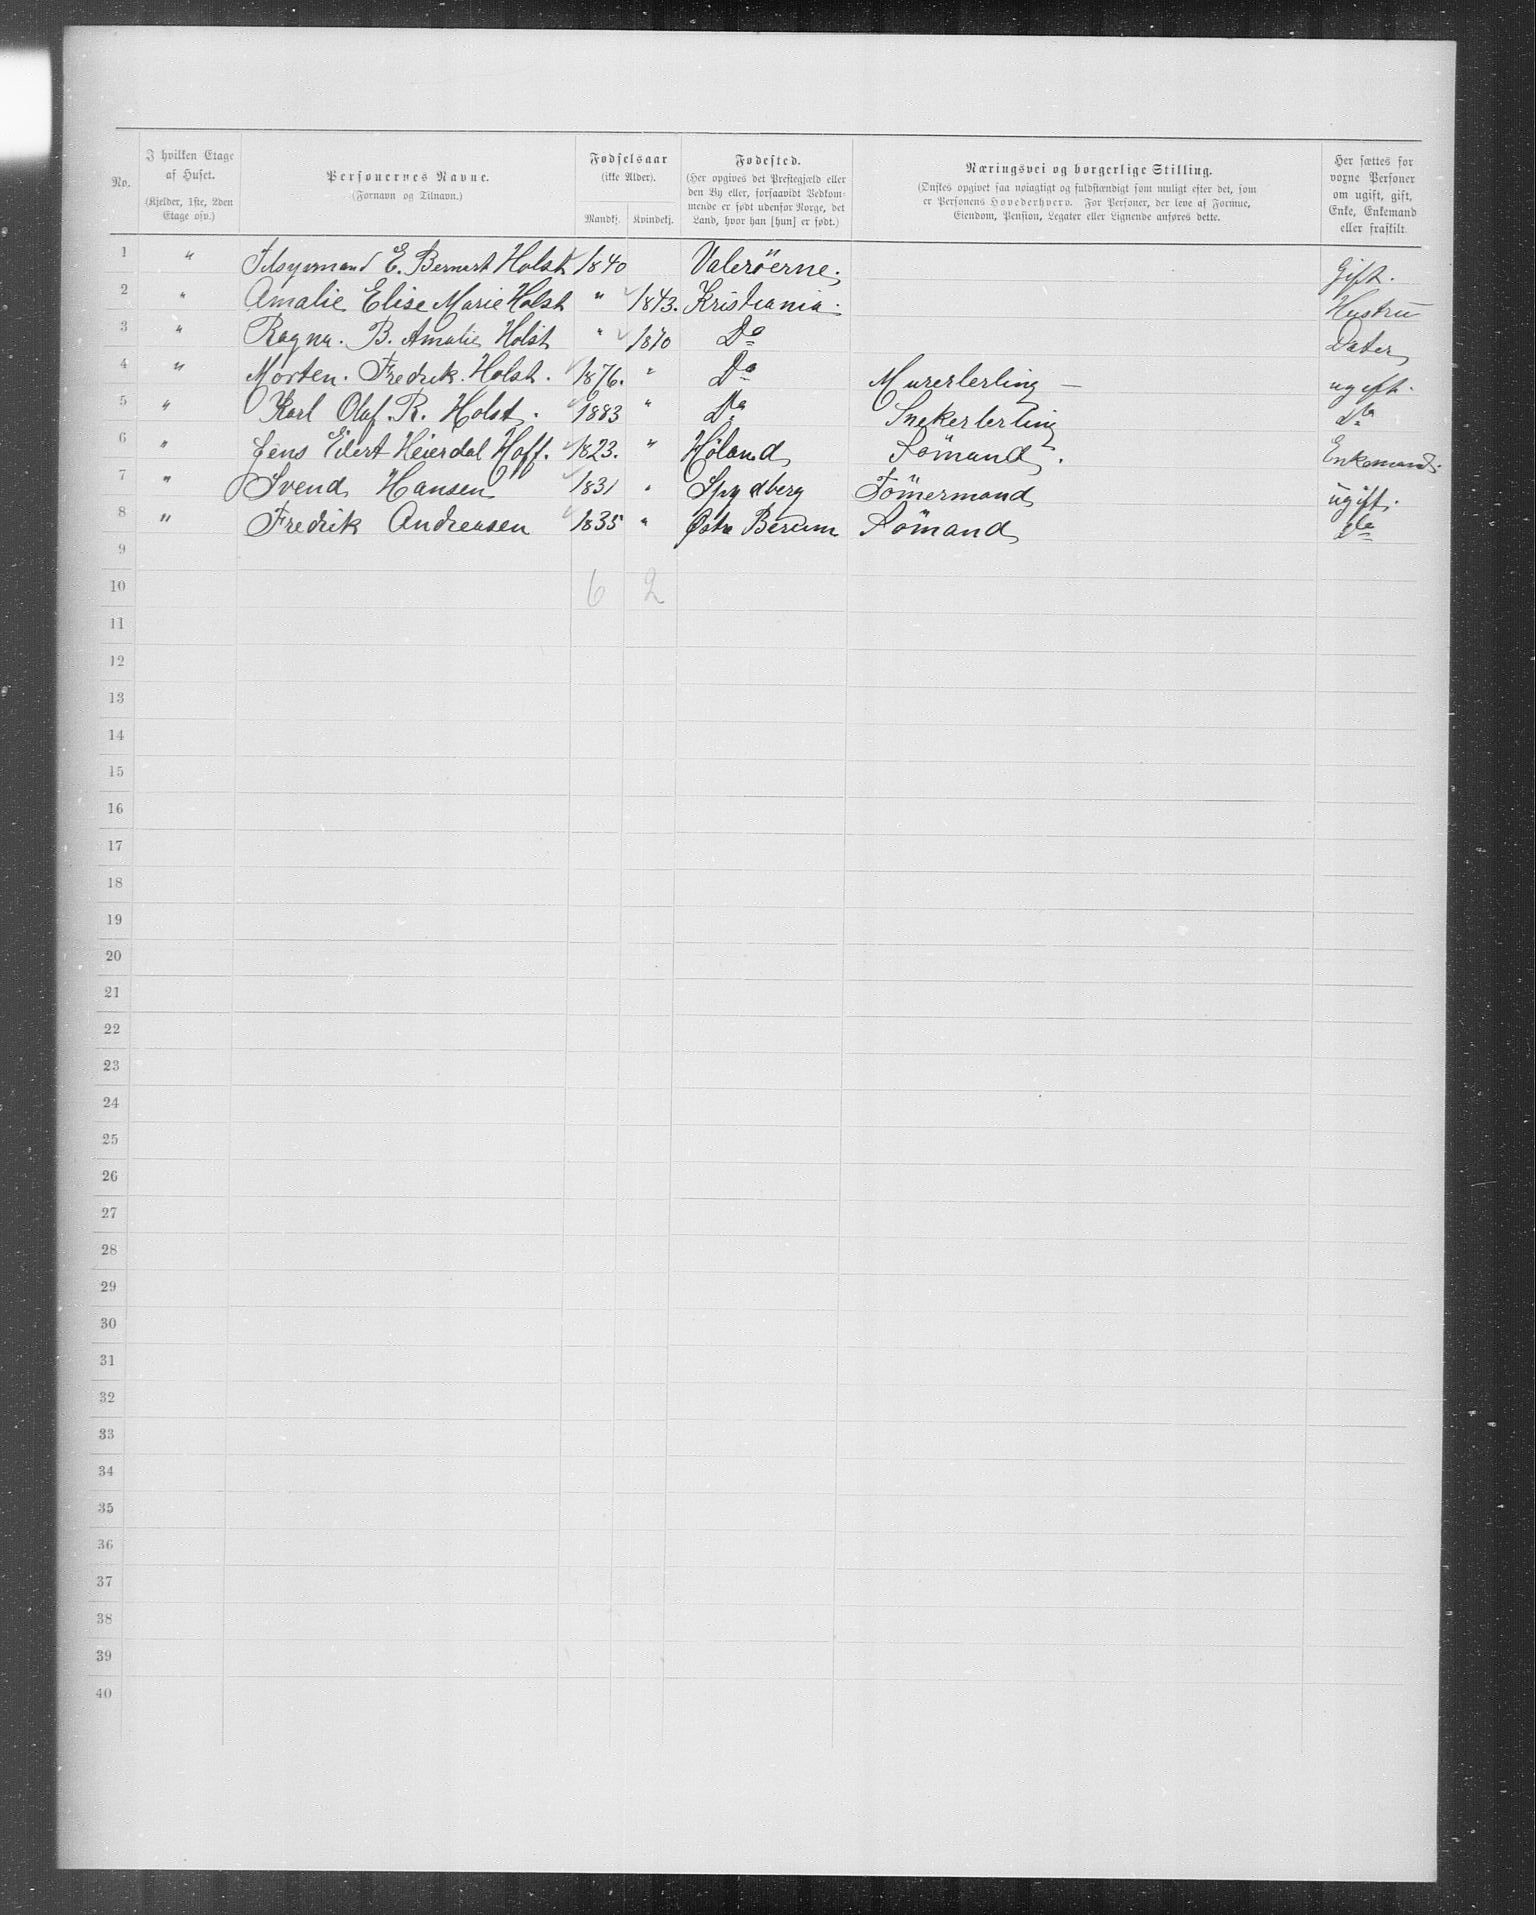 No.
I hvilken Etage af Huset. (Kjelder, 1ste, 2den Etage osv.)
Personernes Navne. (Fornavn og Tilnavn.)
Fødselsaar (ikke Alder). Mandkj. Kvindekj.
Fødested. (Her opgives det Prestegjæld eller den By eller, forsaavidt Vedkommende er født udenfor Norge, det Land, hvor han [hun] er født.)
Næringsvei og borgerlige Stilling. (Ønskes opgivet saa nøiagtigt og fuldstændigt som muligt efter det, som er Personens Hovederhverv. For Personer, der leve af Formue, Eiendom, Pension, Legater eller Lignende anføres dette.)
Her sættes for vorne Personer om ugift, gift, Enke, Enkemand eller fraskilt.
1 " E. Bernert Holst 1840 Valeröerne. Gift.
2 " Amalie Elise Marie Holst " 1843. Kristiania. Hustru
3 " Ragna. B. Amalie Holst " 1870 Do Dater
4 " Morten. Fredrik. Holst. 1876. " Do Murerlerling — ugift.
5 " Karl Olaf. R. Holst. 1883 " Do Snekerlerling do
6 " Jens Eilert Heierdal Hoff. 1823. " Höland Sömand. Enkemand.
7 " Svend Hansen 1831 " Spydberg Tömermand ugift.
8 " Fredrik Andreasen 1835 " Østre Berum Sömand do
9
10 6 2
11
12
13
14
15
16
17
18
19
20
21
22
23
24
25
26
27
28
29
30
31
32
33
34
35
36
37
38
39
40